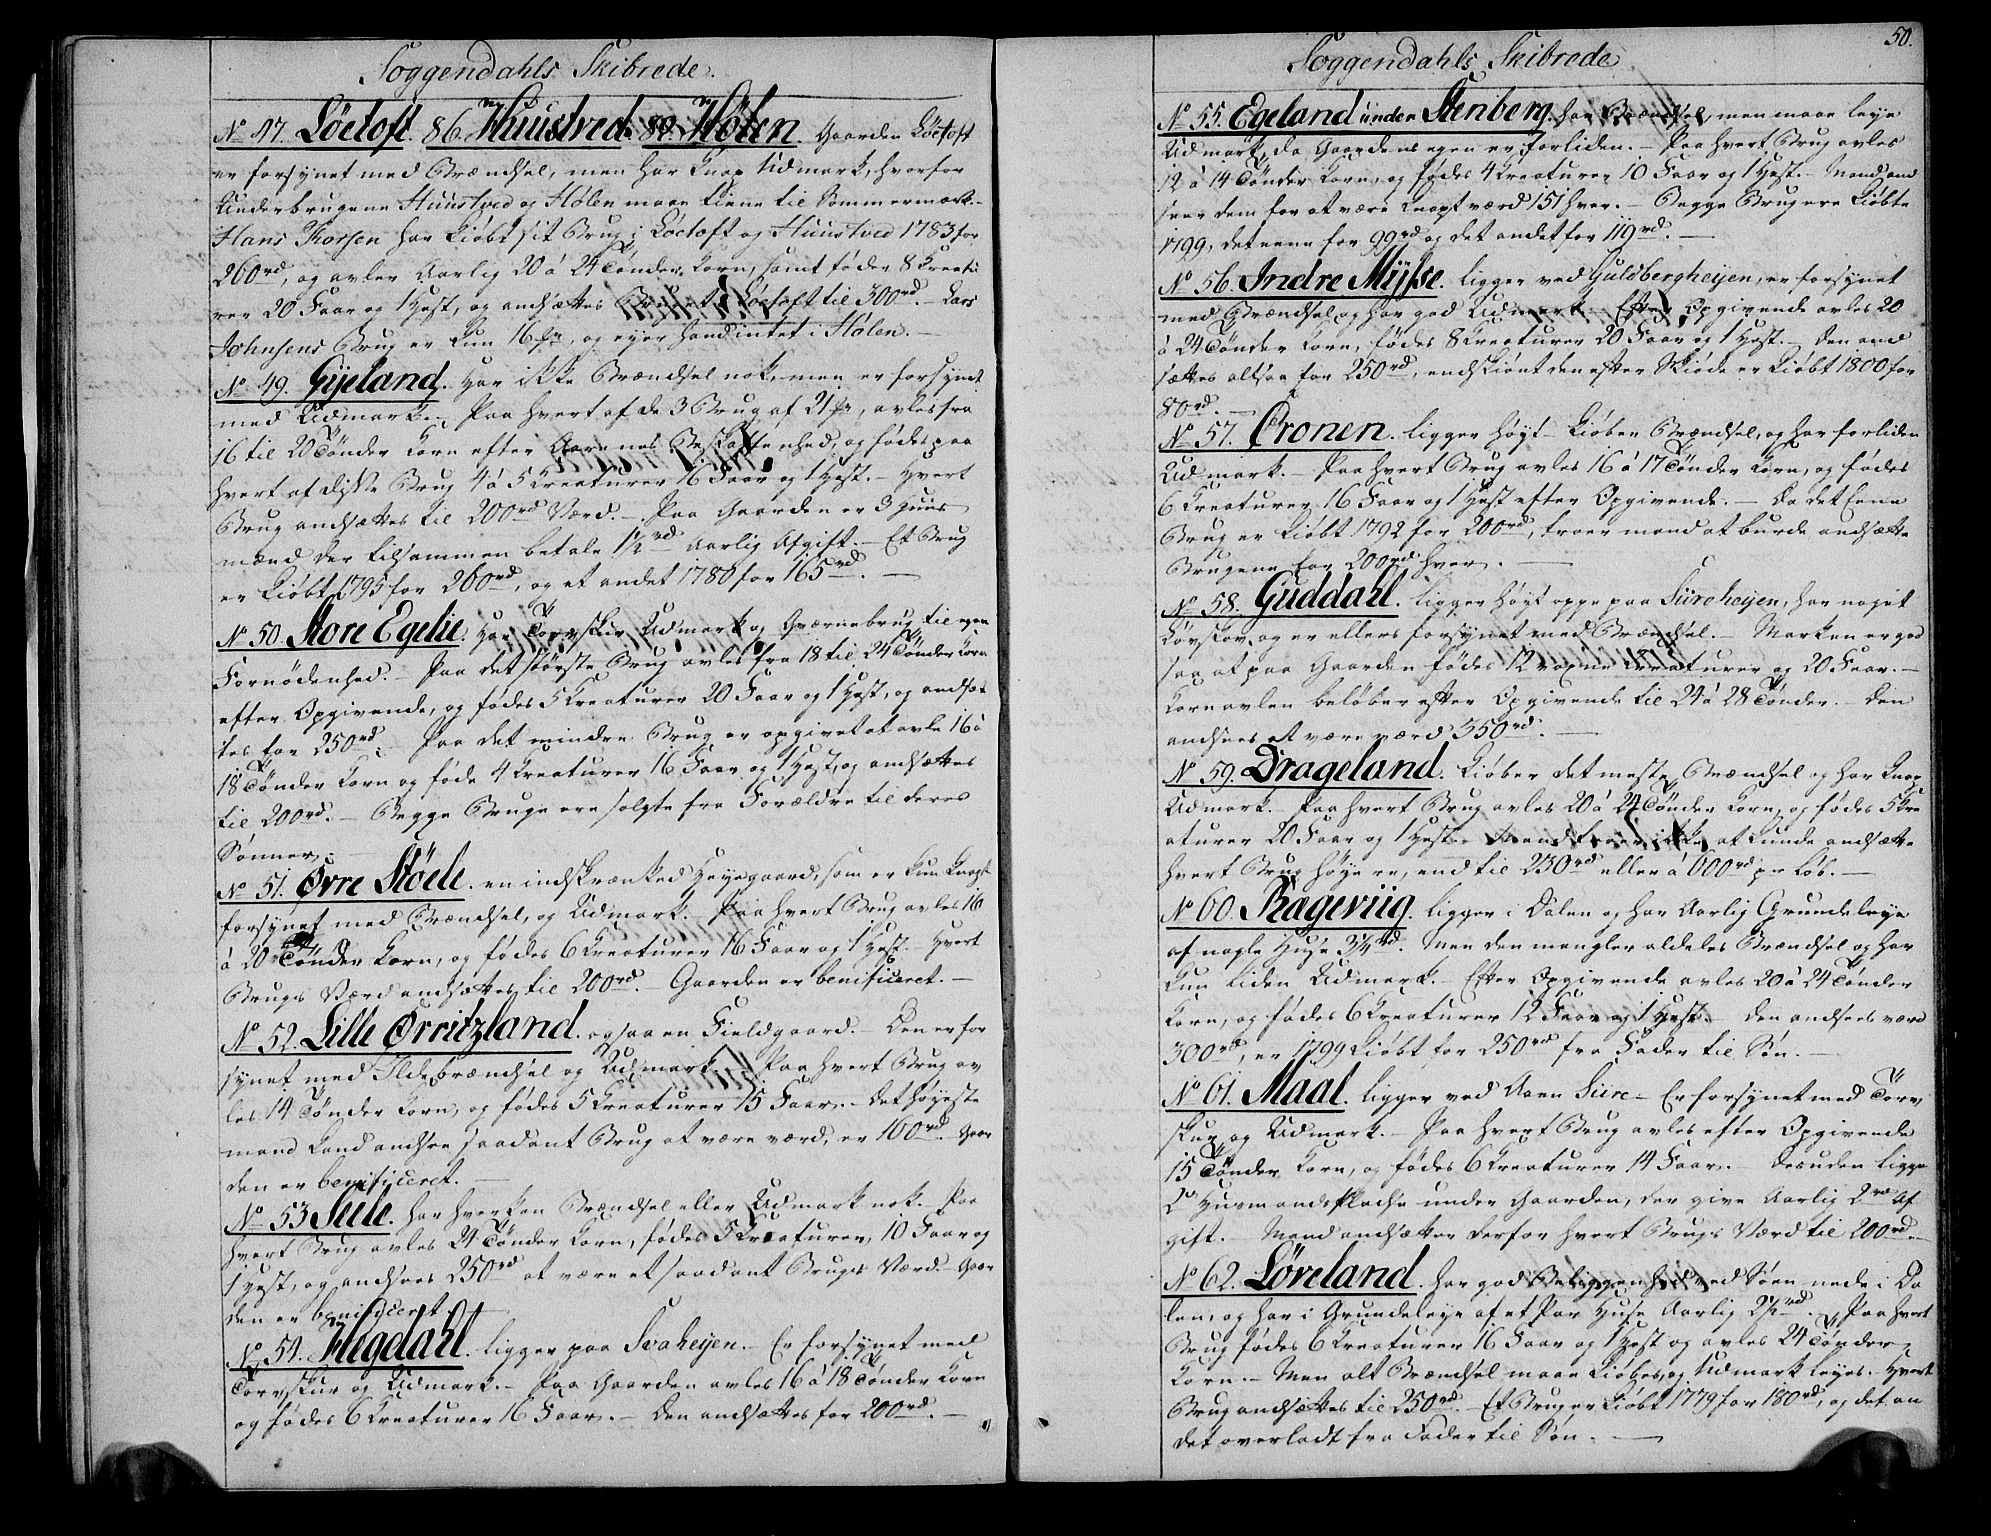 Soggendahls Skibrede.
No 47. Löetoft. 86. Huustved. 89. Hölen. Gaarden Löetoft
er forsynet med Brændsel, men har knap Udmark, hvorfor
Underbrugene Huustved og Hölen maae tiene til Sommermark.
Hans Thorsen har kiöbt sit Brug i Löetoft og Huustved 1783 for
260rd, og avler Aarlig 20 à 24 Tönder Korn, samt föder 8 Kreatu
rer 20 Faar og 1 Hest, og andsættes Bruget i Löetoft til 300rd. Lars
Johnsens Brug er kun 16 , og eyer hand intet i Hölen.
No 49. Gyeland. Har ikke Brændsel nok, men er forsynt
med Udmark. Paa hvert af de 3 Brug af 21 , avles fra
16 til 20 Tönder Korn efter Aarenes Beskaffenhed, og födes paa
hvert af disse Brug 4 à 5 Kreaturer 16 Faar og 1 Hest. Hvert
Brug andsættes til 200rd Værd. Paa Gaarden er 3 Huus
mænd der tilsammen betale 1½rd Aarlig Afgift. Et Brug
er kiöbt 1795 for 260rd, og et andet 1780 for 165rd.
No 50. Store Egelie. Har Torvskur, Udmark og Qværnebrug til egen
Fornödenhed. Paa det störste Brug avles fra 18 til 24 Tönder Korn
efter Opgivende, og födes 5 Kreaturer 20 Faar og 1 Hest, og andsæt
tes for 250rd. Paa det mindre Brug er opgivet at avle 16 à
18 Tönder Korn og föde 4 Kreaturer 16 Faar og 1 Hest, og andsættes
til 200rd. Begge Bruge ere solgte fra Forældre til deres
Sönner.
No 51. Övre Stöele. en indskrænked Heyegaard, som er kun knapt
forsynet med Brændsel, og Udmark. Paa hvert Brug avles 16
à 20 Tönder Korn, og födes 6 Kreaturer 16 Faar og 1 Hest. Hvert
Brugs Værd andsættes til 200rd. Gaarden er benificeret.
No 52. Lille Örritzland. ogsaa en Fieldgaard. Den er for
synet med Ildebrændsel og Udmark. Paa hvert Brug av
les 14 Tönder Korn, og födes 5 Kreaturer 15 Faar. Det höyeste
mand kand andsee saadant Brug at være værd, er 100rd. Gaar
den er benificeret.
No 53 Seele. Har hverken Brændsel eller Udmark nok. Paa
hvert Brug avles 24 Tönder Korn, födes 5 Kreaturer, 10 Faar og
1 Hest, og andsees 250rd at være et saadant Brugs Værd. Gaar
den er benificeret.
No 54. Hegdahl. ligger paa Svaheyen. Er forsynet med
Torvskur og Udmark. Paa Gaarden avles 16 à 18 Tönder Korn
og födes 6 Kreaturer 16 Faar. Den andsættes for 200rd.
50.
Soggendahls Skibrede
No 55. Egeland under Stenberg. har Brændsel, men maae leye
Udmark, da Gaardens egen er for liden. Paa hvert Brug avles
12 à 14 Tönder Korn, og födes 4 Kreaturer 10 Faar og 1 Hest. Mand and
seer dem for at være knapt værd 151 hver. Begge Brug ere kiöbte
1799, det eene for 99rd og det andet for 119rd.
No 56. Indre Mysse. ligger ved Guldbergheyen, er forsynet
med Brændsel og har god Udmark. Efter Opgivende avles 20
à 24 Tönder Korn, födes 8 Kreaturer 20 Faar og 1 Hest. Den and
sættes altsaa for 250rd, endskiönt den efter Skiöde er kiöbt 1800 for
80rd.
No 57. Cronen. ligger höyt kiöber Brændsel, og har for liden
Udmark. Paa hvert Brug avles 16 à 17 Tönder Korn, og födes
6 Kreaturer, 16 Faar og 1 Hest efter Opgivende. Da det Eene
Brug er kiöbt 1792 for 200rd, troer mand at burde andsætte
Brugene for 200rd hver.
No 58. Guddahl. ligger höyt oppe paa Siireheyen, har noget
Lövskov og er ellers forsynet med Brændsel. Marken er god
saa at paa Gaarden födes 12 voxne Kreaturer og 20 Faar.
Kornavlen belöber efter Opgivende til 24 à 28 Tönder. Den
andsees at være værd 350rd.
No 59. Drageland. kiöber det meste Brændsel og har knap
Udmark. Paa hvert Brug avles 20 à 24 Tönder Korn, og födes 5 Kre
aturer 20 Faar og 1 Hest. Mand troer ikke at kunde andsætte
hvert Brug höyere, end til 230rd eller à 600rd pr Löb.
No 60. Rageviig. ligger i Dalen og har Aarlig Grundeleye
af nogle Huse 3¼rd. Men den mangler aldeles Brændsel og har
kun liden Udmark. Efter Opgivende avles 20 à 24 Tönder
Korn, og födes 6 Kreaturer 12 Faar og 1 Hest. Den andsees værd
300rd, er 1799 kiöbt for 250rd fra Fader til Sön.
No 61. Maal. ligger ved Aaen Siire. Er forsynet med Torv
skur og Udmark. Paa hvert Brug avles efter Opgivende
15 Tönder Korn, og födes 6 Kreaturer 14 Faar. Desuden ligger
2 Husmandspladse under Gaarden, der give Aarlig 2rd Af
gift. Mand andsætter derfor hvert Brugs Værd til 200rd.
No 62. Löreland. har god Beliggenhed ved Söen nede i Da
len, og har i Grundeleye af et Par Huse Aarlig 2½rd. Paa hvert
Brug födes 6 Kreaturer 16 Faar og 1 Hest og avles 24 Tönder
Korn. Men alt Brændsel maae kiöbes, og Udmark leyes. Hvert
Brug andsættes til 250rd. Et Brug er kiöbt 1779 for 180rd, og det an
det overladt fra Fader til Sön.